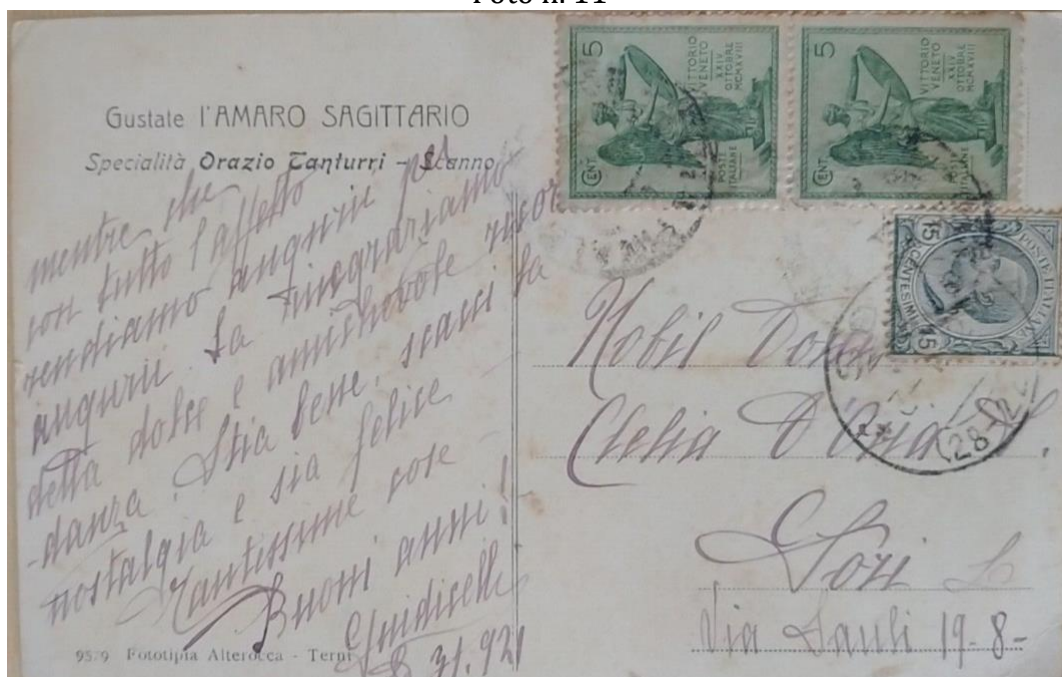 Foto n. 11
Gustate l'AMARO SAGITTARIO
Specialità Orazio Tanturri - Scanno
mentre che
con tutto l'affetto
rendiamo augurii per
augurii. La ringraziamo
della dolce e amichevole ricor
-danza. Stia bene, scacci la
nostalgia e sia felice
Tantissime cose
Buoni anni!
9579 Fototipia Alterocca - Terni
5 CENT
VITTORIO
VENETO
XXIV
OTTOBRE
MCMXVIII
POSTE
ITALIANE
5 CENT
VITTORIO
VENETO
XXIV
OTTOBRE
MCMXVIII
POSTE
ITALIANE
15 POSTE ITALIANE
CENTESIMI 15
(28-12
Nobil Donna
Clelia D'Oria
Sori
Via Sauli 19-8-